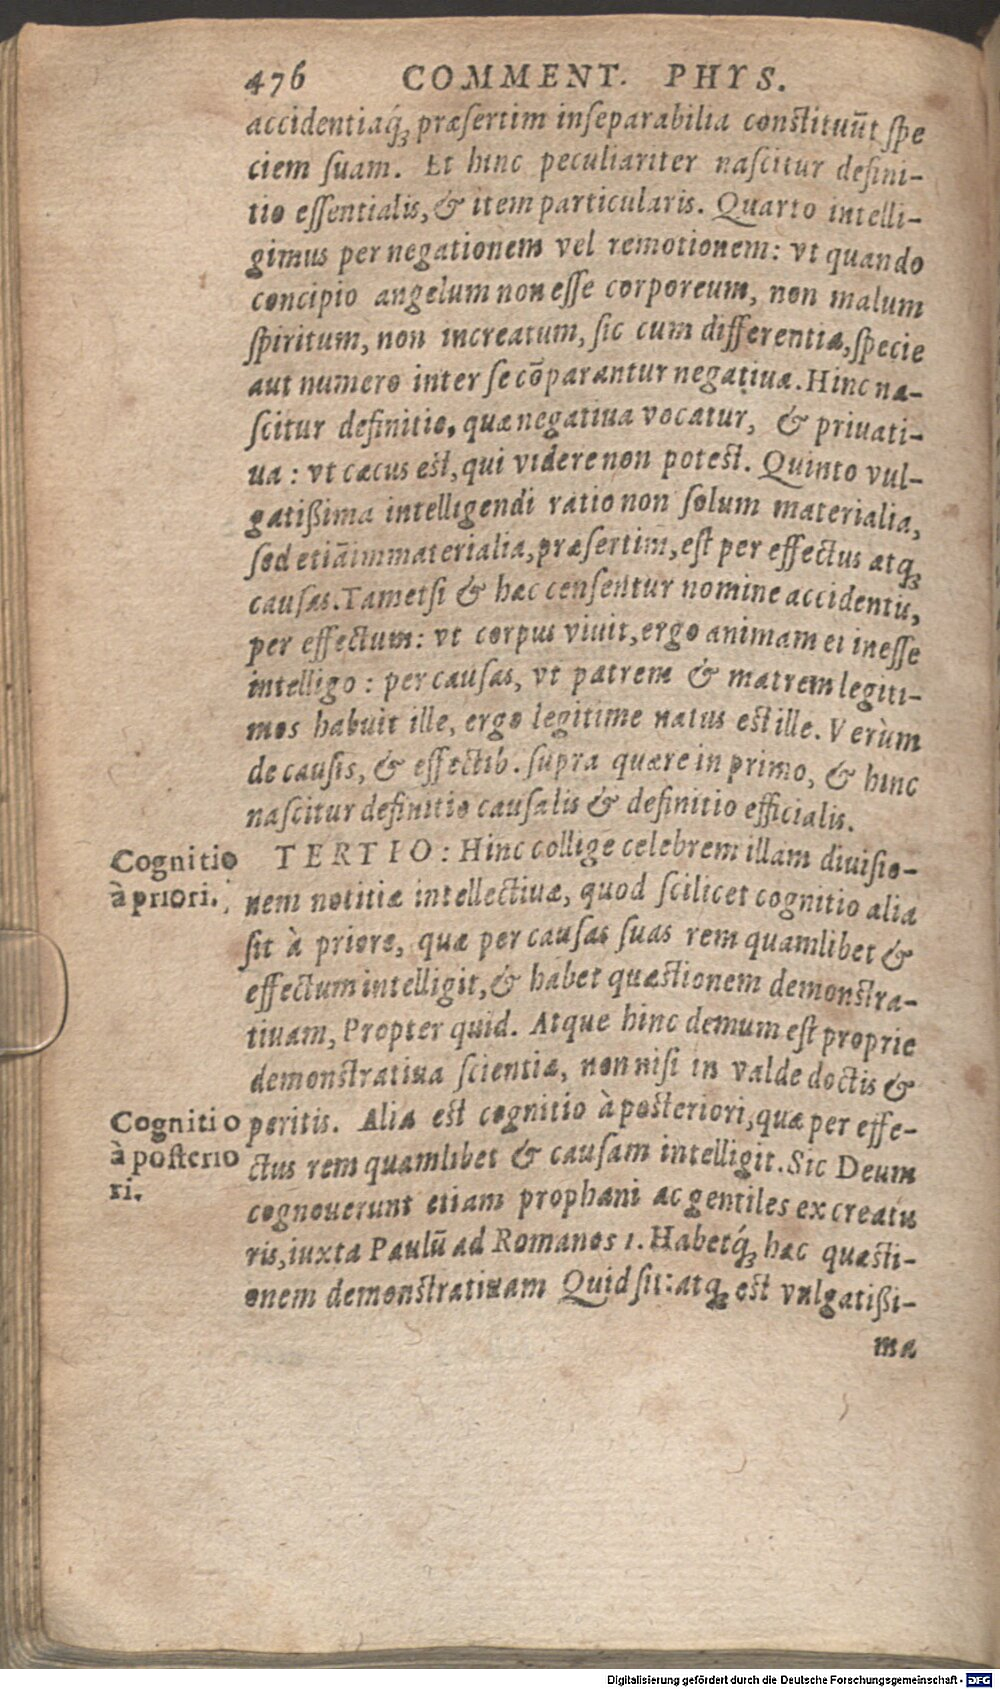 476 COMMENT. PHYS.
accidentiaq́ꝫ præsertim inseparabilia constituūt spe
ciem suam. Et hinc peculiariter nascitur defini-
tio essentialis, & item particularis. Quarto intelli-
gimus per negationem vel remotionem: vt quando
concipio angelum non esse corporeum, non malum
spiritum, non increatum, sic cum differentiæ, specie
aut numero inter se cōparantur negatiuæ. Hinc na-
scitur definitio, quæ negatiua vocatur, & priuati-
ua: vt cæcus est, qui videre non potest. Quinto vul-
gatißima intelligendi ratio non solum materialia,
sed etiā immaterialia, præsertim, est per effectus atqꝫ
causas. Tametsi & hæc censentur nomine accidentis,
per effectum: vt corpus viuit, ergo animam ei inesse
intelligo: per causas, vt patrem & matrem legiti-
mos habuit ille, ergo legitime natus est ille. Verùm
de causis, & effectib. supra quære in primo, & hinc
nascitur definitio causalis & definitio efficialis.
Cognitio
à priori.
TERTIO: Hinc collige celebrem illam diuisio-
nem notitiæ intellectiuæ, quod scilicet cognitio alia
sit à priore, quæ per causas suas rem quamlibet &
effectum intelligit, & habet quæstionem demonstra-
tiuam, Propter quid. Atque hinc demum est proprie
demonstratiua scientia, non nisi in valde doctis &
Cognitio
à posterio
ri.
peritis. Alia est cognitio à posteriori, quæ per effe-
ctus rem quamlibet & causam intelligit. Sic Deum
cognouerunt etiam prophani ac gentiles ex creatu
ris, iuxta Paulū ad Romanos 1. Habetq́ꝫ hæc quæsti-
onem demonstratiuam Quid sit: atqꝫ est vulgatißi-
ma
Digitalisierung gefördert durch die Deutsche Forschungsgemeinschaft - DFG